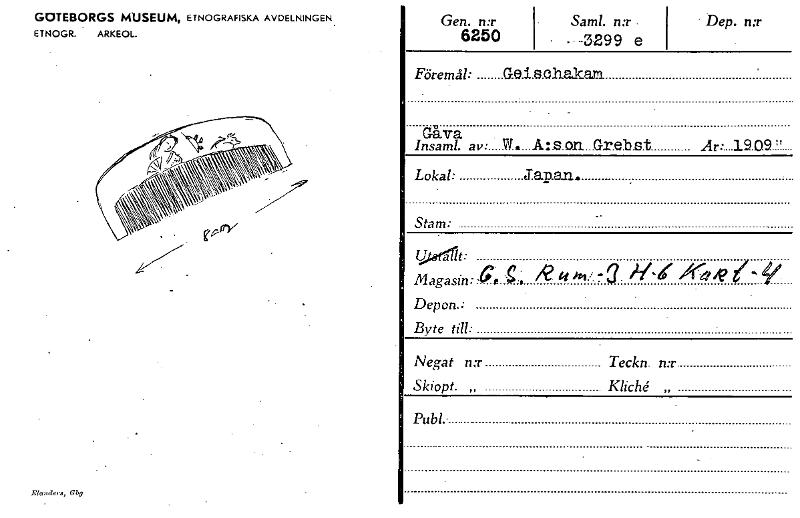 GÖTEBORGS MUSEUM, ETNOGRAFISKA AVDELNINGEN
ETNOGR. ARKEOL.
8 cm
Elanders, Gbg
Gen. n:r Saml. n:r Dep. n:r
6250 3299 e
Föremål: Geischakam
Gåva
Insaml. av: W. A:son Grebst År: 1909
Lokal: Japan.
Stam:
Utställt:
Magasin: G.S. Rum-3 H-6 Kart-4
Depon.:
Byte till:
Negat n:r Teckn. n:r
Skiopt. „ Kliché „
Publ.